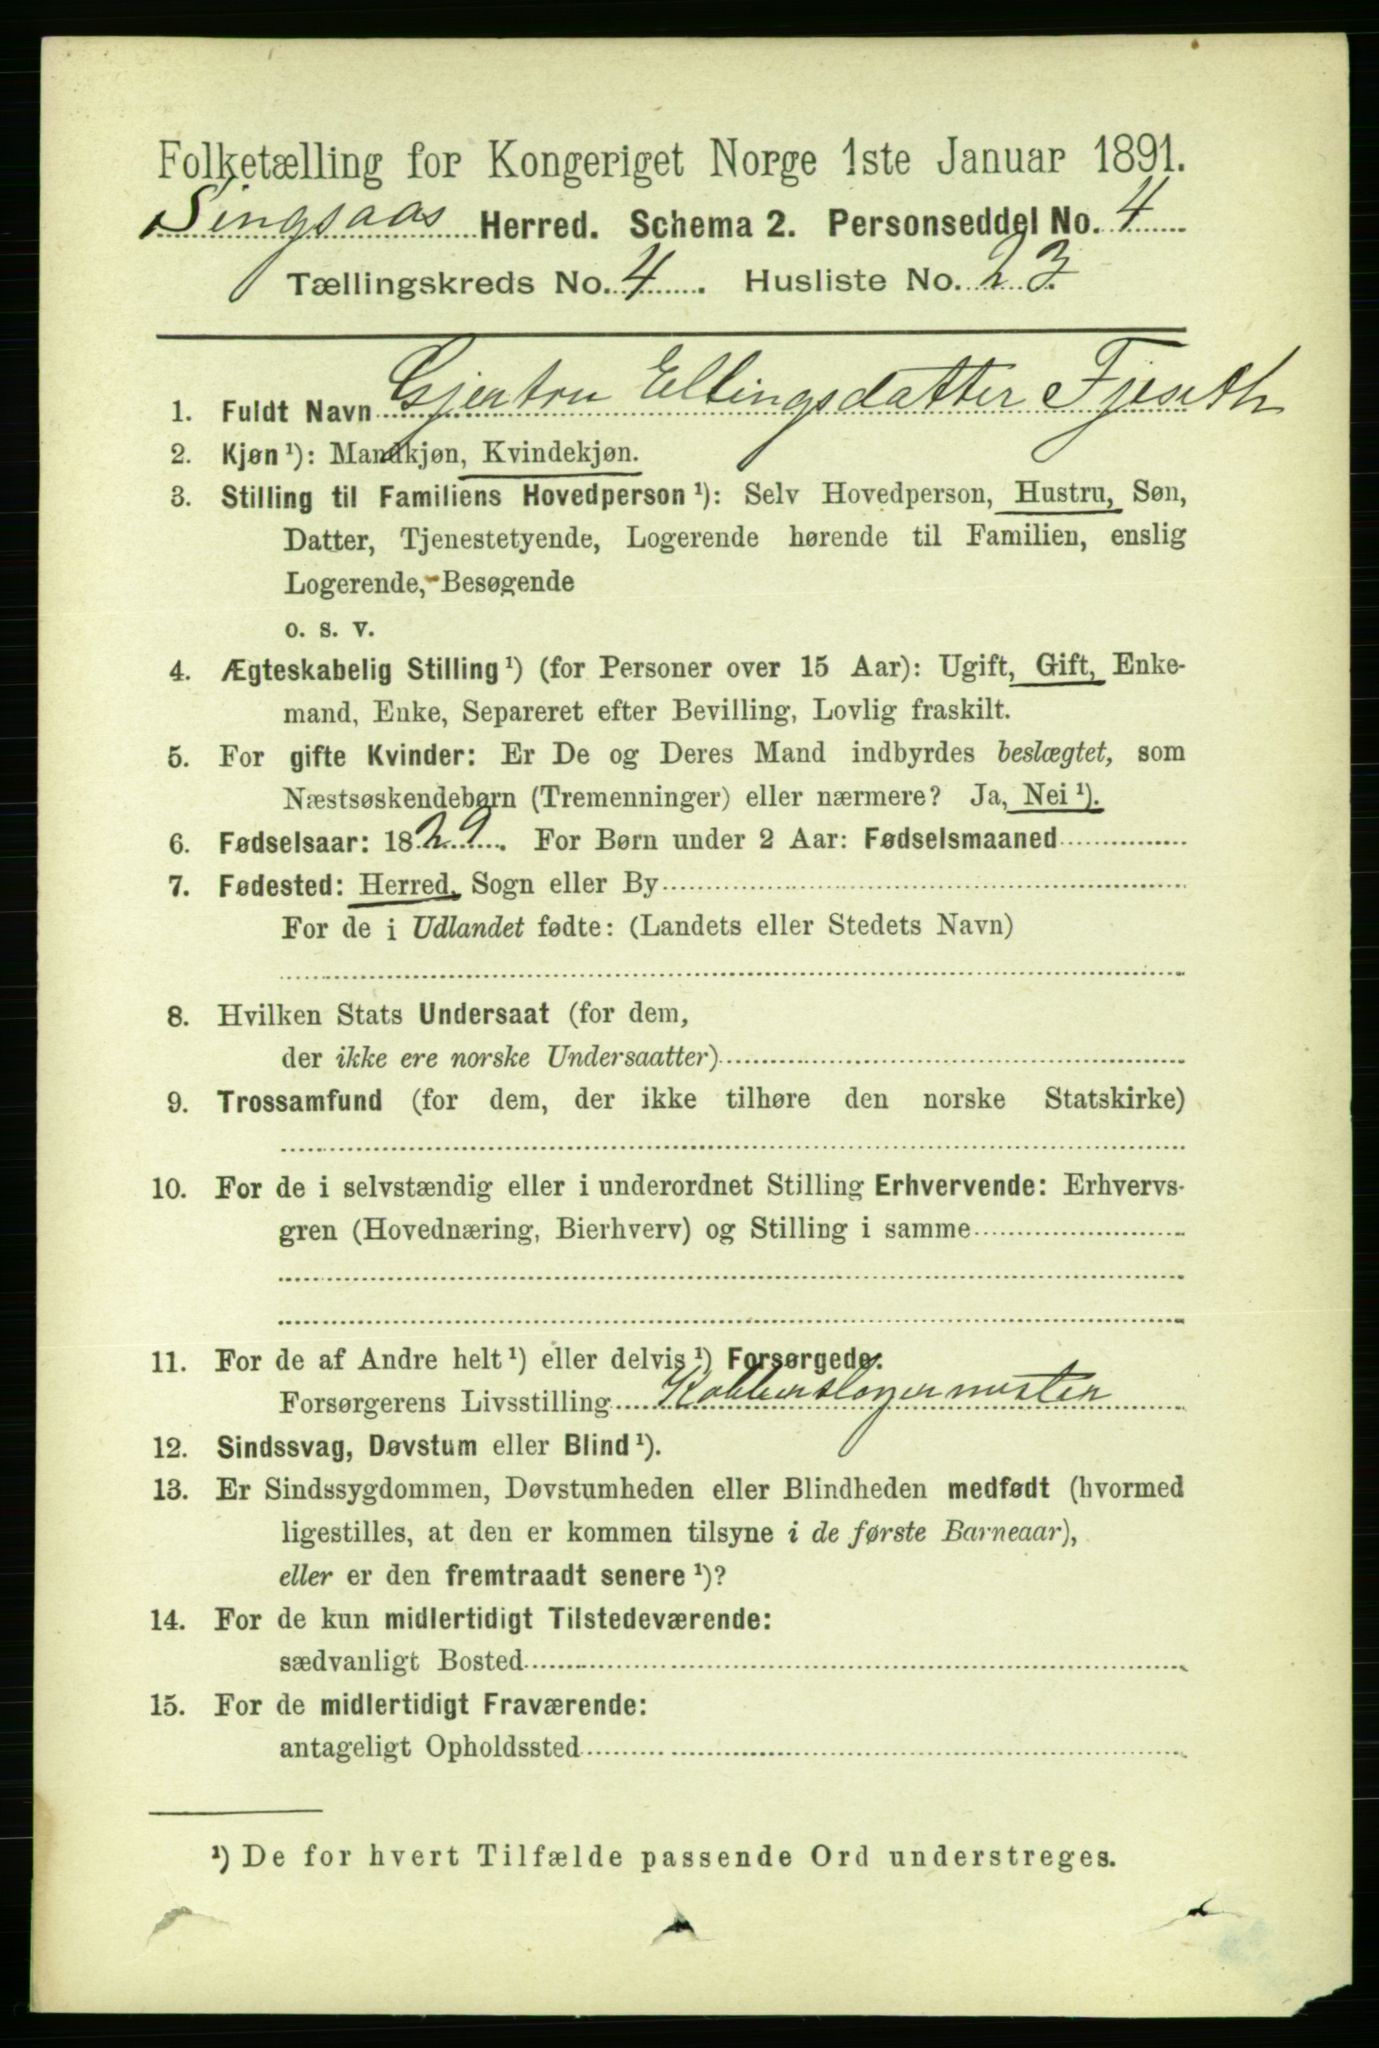 Folketælling for Kongeriget Norge 1ste Januar 1891.
Singsaas Herred. Schema 2. Personseddel No. 4
Tællingskreds No. 4. Husliste No. 23.
1. Fuldt Navn Gjertru Ellingsdatter Fjeseth
2. Kjøn¹): Mandkjøn, Kvindekjøn.
3. Stilling til Familiens Hovedperson¹): Selv Hovedperson, Hustru, Søn,
Datter, Tjenestetyende, Logerende hørende til Familien, enslig
Logerende, Besøgende
o. s. v.
4. Ægteskabelig Stilling¹) (for Personer over 15 Aar): Ugift, Gift, Enke-
mand, Enke, Separeret efter Bevilling, Lovlig fraskilt.
5. For gifte Kvinder: Er De og Deres Mand indbyrdes beslægtet, som
Næstsøskendebørn (Tremenninger) eller nærmere? Ja, Nei¹).
6. Fødselsaar: 1829. For Børn under 2 Aar: Fødselsmaaned
7. Fødested: Herred, Sogn eller By
For de i Udlandet fødte: (Landets eller Stedets Navn)
8. Hvilken Stats Undersaat (for dem,
der ikke ere norske Undersaatter)
9. Trossamfund (for dem, der ikke tilhøre den norske Statskirke)
10. For de i selvstændig eller i underordnet Stilling Erhvervende: Erhvervs-
gren (Hovednæring, Bierhverv) og Stilling i samme
11. For de af Andre helt¹) eller delvis¹) Forsørgede:
Forsørgerens Livsstilling
12. Sindssvag, Døvstum eller Blind¹).
13. Er Sindssygdommen, Døvstumheden eller Blindheden medfødt (hvormed
ligestilles, at den er kommen tilsyne i de første Barneaar),
eller er den fremtraadt senere¹)?
14. For de kun midlertidigt Tilstedeværende:
sædvanligt Bosted
15. For de midlertidigt Fraværende:
antageligt Opholdssted
¹) De for hvert Tilfælde passende Ord understreges.